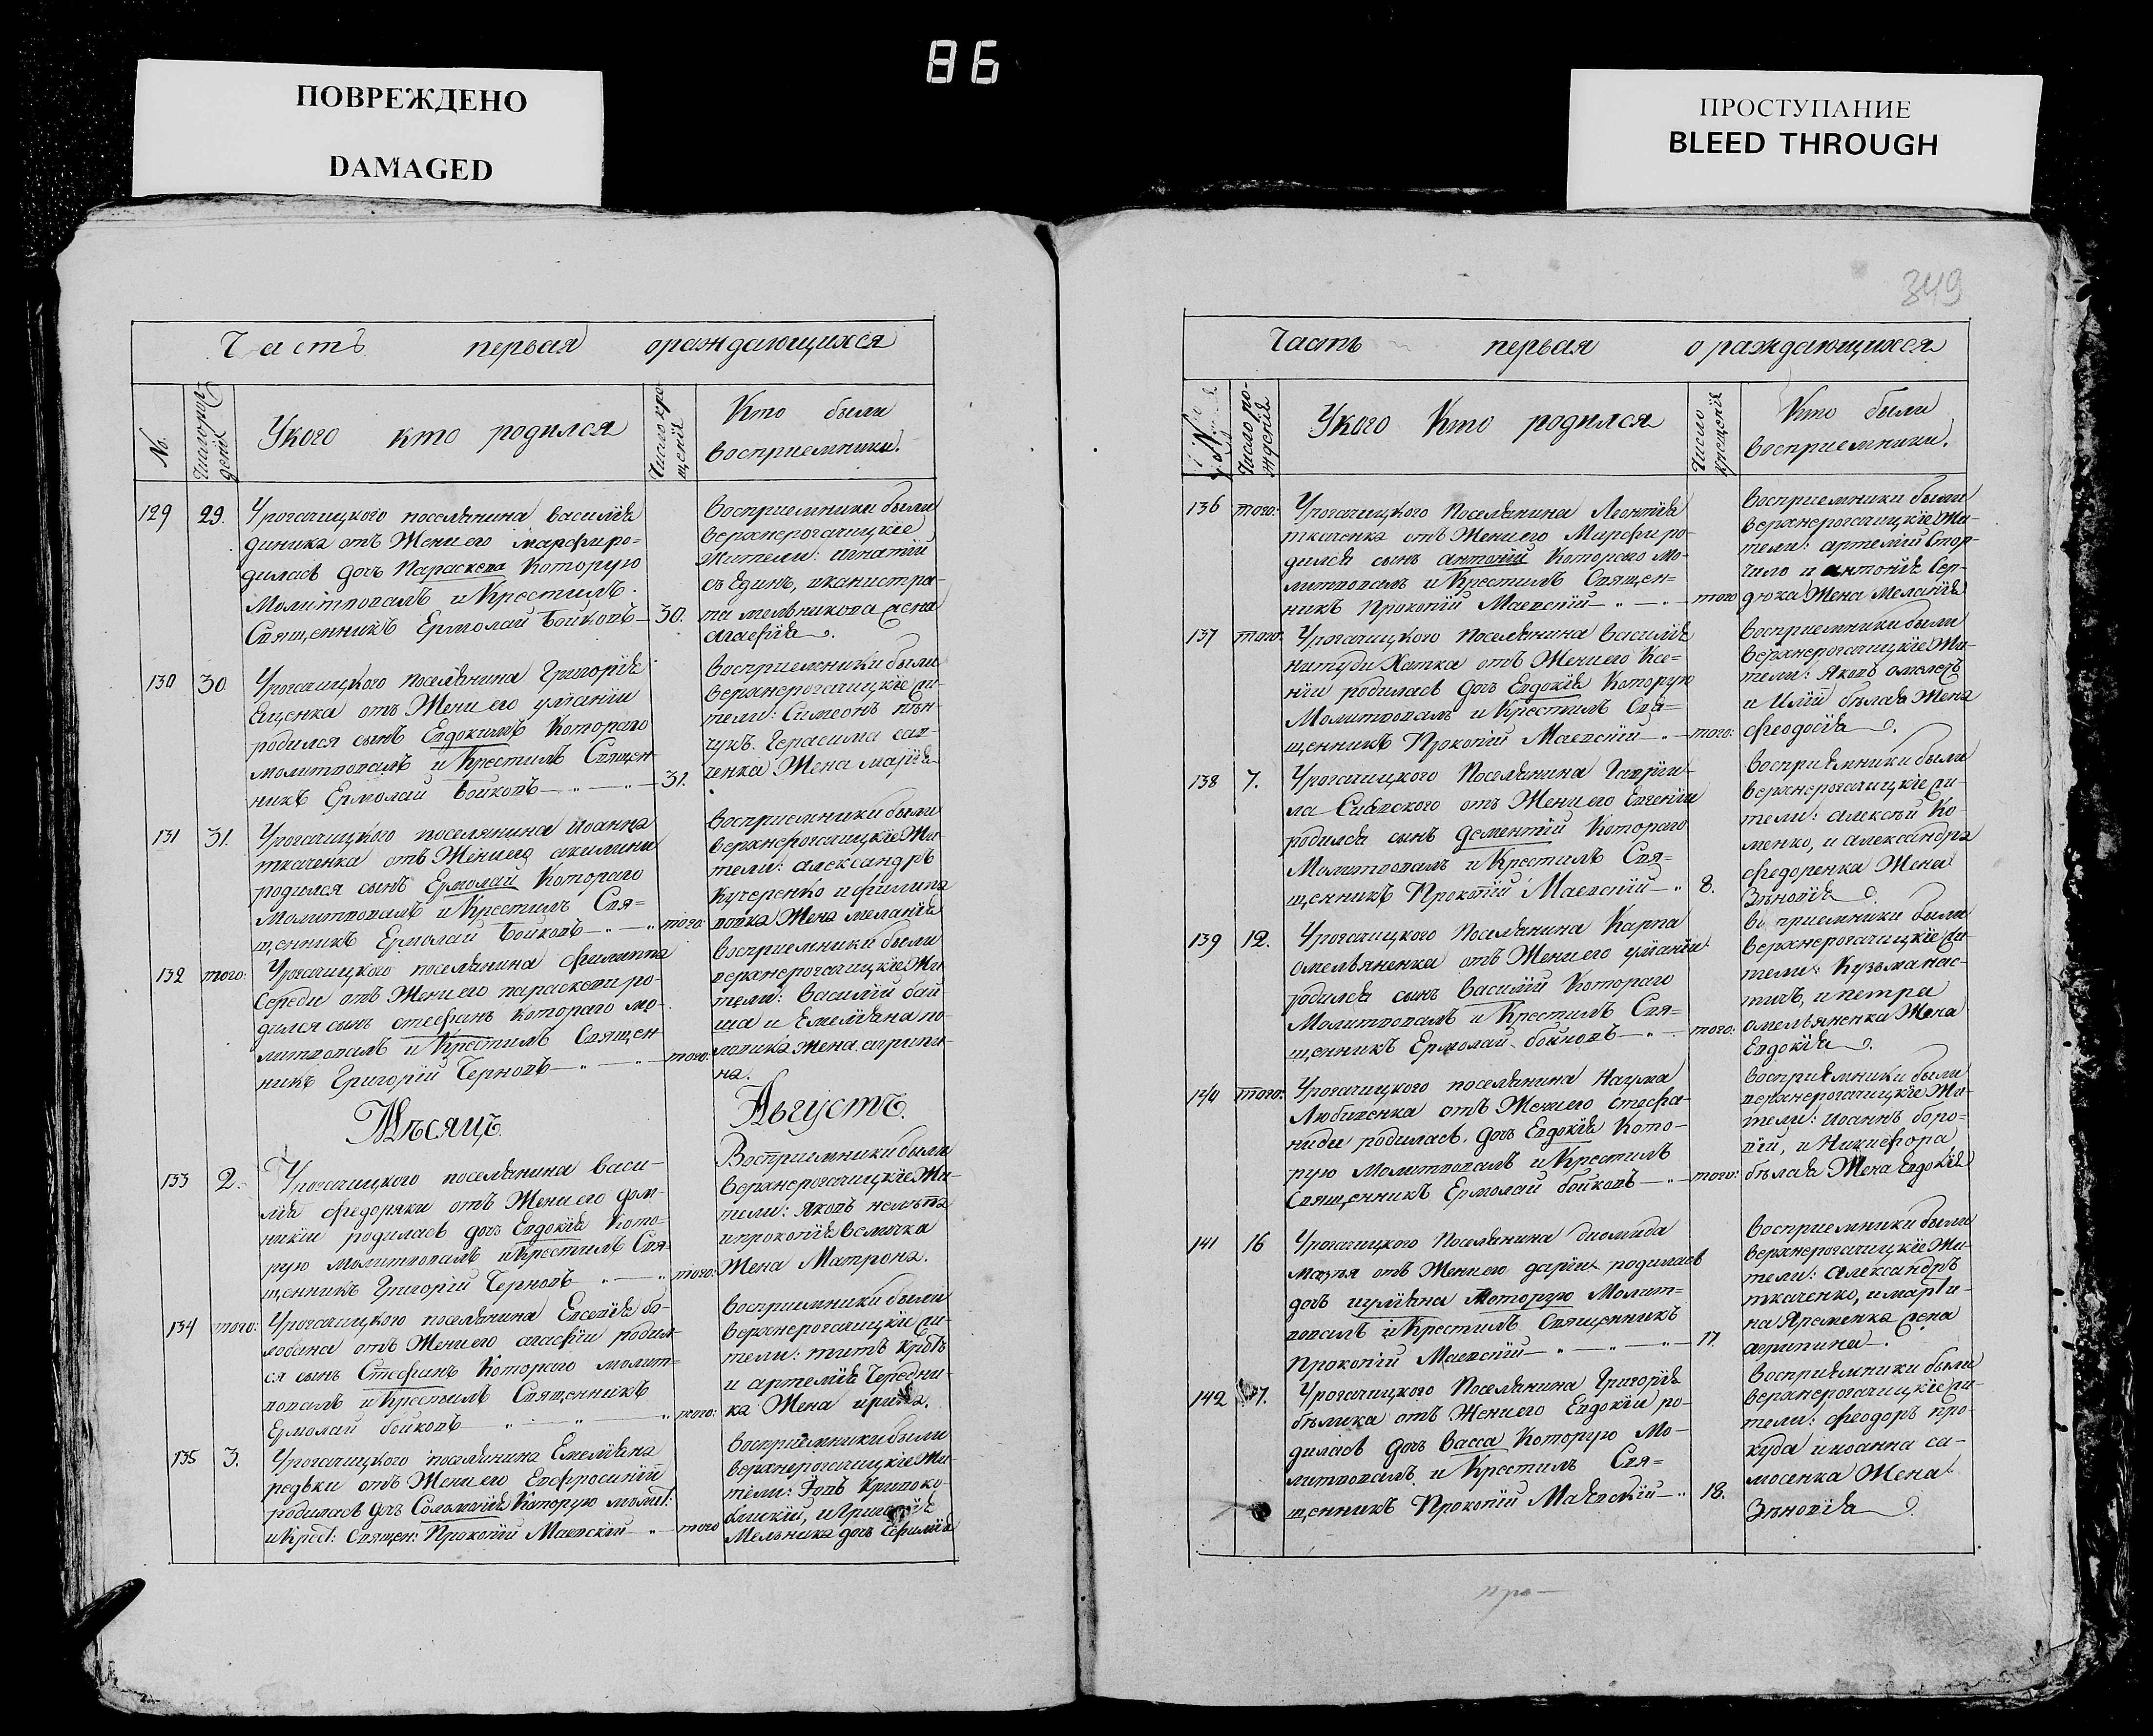 86
ПОВРЕЖДЕНО
DAMAGED
ПРОСТУПАНИЕ
BLEED THROUGH
Часть первая ораждающихся
No.
Число рож-
денія
Укого кто родился
Число кре-
щенія
Кто были
восприемники.
129 29. Урогачицкого поселянина василія
диника отъ Жени его марфи ро-
дилась дочь Параскева которую
Молитвовалъ и Крестилъ
Священникъ Ермолай Бойковъ 30.
Восприемники были
верхнерогачицкіе
Жители: игнатій
та мельникова жена
агафія
130 30 Урогачицкого поселянина Григорія
Ещенка отъ Жени его уліаніи
родился сынъ Евдокимъ Котораго
молитвовалъ и Крестилъ Священ-
никъ Ермолай Бойковъ 31.
Восприемники были
верхнерогачицкіе жи-
тели: Симеонъ
Герасима сав-
ченка Жена марія
131 31. Урогачицкого поселянина Иоанна
ткаченка отъ Жени его акилини
родился сынъ Ермолай Котораго
Молитвовалъ и Крестилъ Свя-
щенникъ Ермолай Бойковъ того:
восприемники были
верхнерогачицкіе Жи-
тели: александръ
Кучеренко и филипа
попка Жена меланія
132 того: Урогачицкого поселянина филиппа
Середи отъ Жени его параскеви ро-
дился сынъ стефанъ котораго мо-
литвовалъ и Крестилъ Священ
никъ Григорій Черновъ того:
восприемники были
верхнерогачицкіе Жи-
тели: василій бай-
ша и Емеліана по-
ловика Жена агрипи-
на.
Мѣсяцъ Августъ.
133 2. Урогачицкого поселянина васи-
лія федоряки отъ Жени его дом-
никіи родилась дочь Евдокія Кото-
рую молитвовалъ и Крестилъ Свя-
щенникъ Григорій Черновъ того:
Восприемники были
верхнерогачицкіе Жи-
тели: яковъ
и прокопія величка
Жена Матрона.
134 того: Урогачицкого поселянина Евсевія бо-
лобана отъ Жени его агафіи родил-
ся сынъ Стефанъ Котораго молит-
вовалъ и Крестилъ Священникъ
Ермолай бойковъ того:
восприемники были
верхнерогачицкіи жи-
тели: титъ
и артемія Чередни-
ка Жена ирина.
135 3. Урогачицкого поселянина Емеліана
редьки отъ Жени его Евфросиніи
родилась дочь Соломонія Которую молит:
и Крест: Священ: Прокопій Маевскій того
восприемники были
верхнерогачицкіе Жи-
тели: Кривоко-
бискій, и
Мельника дочь Евфимія
349
Часть первая о раждающихся
№
Число ро-
жденія
Укого Кто родился
Число
крещенія
Кто были
восприемники.
136 того: Урогачицкого Поселянина Леонтія
ткаченка отъ Жени его Марфи ро-
дился сынъ антоній Котораго Мо-
литвовалъ и Крестилъ Священ-
никъ Прокопій Маевскій того
восприемники были
верхнерогачицкіе Жи-
тели: артемій Стор-
чило и антонія Сер-
дюка Жена Меланія
137 того: Урогачицкого поселянина василія
нитуди Хатка отъ Жени его Ксе-
ніи родилась дочь Евдокія Которую
Молитвовалъ и Крестилъ Свя-
щенникъ Прокопій Маевскій того:
восприемники были
верхнерогачицкіе Жи-
тели: Яковъ
и Иліи бѣлая Жена
феодосія
138 7. Урогачицкого Поселянина Гаврии-
ла Сиевского отъ Жени его Евгеніи
родился сынъ дементій Котораго
Молитвовалъ и Крестилъ Свя-
щенникъ Прокопій Маевскій 8.
восприемники были
верхнерогачицкіе жи-
тели: алексѣй Ко-
менко, и александра
федоренка Жена
Зѣновія
139 12. Урогачицкого Поселянина Карпа
омельяненка отъ Жени его уліаніи
родился сынъ василій Котораго
Молитвовалъ и Крестилъ Свя-
щенникъ Ермолай бойковъ того:
во приемники были
верхнерогачицкіе жи-
тели: Кузьма нас-
тичъ, и петра
омельяненка Жена
Евдокія
140 того: Урогачицкого поселянина Наума
Любиченка отъ Жени его стефа-
ниды родилась дочь Евдокія Кото-
рую Молитвовалъ и Крестилъ
Священникъ Ермолай бойковъ того:
восприемники были
верхнерогачицкіе Жи-
тели: иоаннъ боро-
вій, и Никифора
бѣлая Жена Евдокія
141 16 Урогачицкого Поселянина диомида
мазья отъ Жени его даріи родилась
дочь иуліана Которую Молит-
вовалъ и Крестилъ Священникъ
Прокопій Маевскій 17.
восприемники были
верхнерогачицкіе Жи-
тели: александръ
ткаченко, и марти-
на Яременка жена
агрипина
142 17. Урогачицкого Поселянина Григорія
бѣлика отъ Жени его Евдокіи ро-
дилась дочь васса Которую Мо-
литвовалъ и Крестилъ Свя-
щенникъ Прокопій Маевскій 18.
восприемники были
верхнерогачицкіе жи-
тели: феодоръ про-
куда и иоанна са-
мосенка Жена
Зѣновія
про-